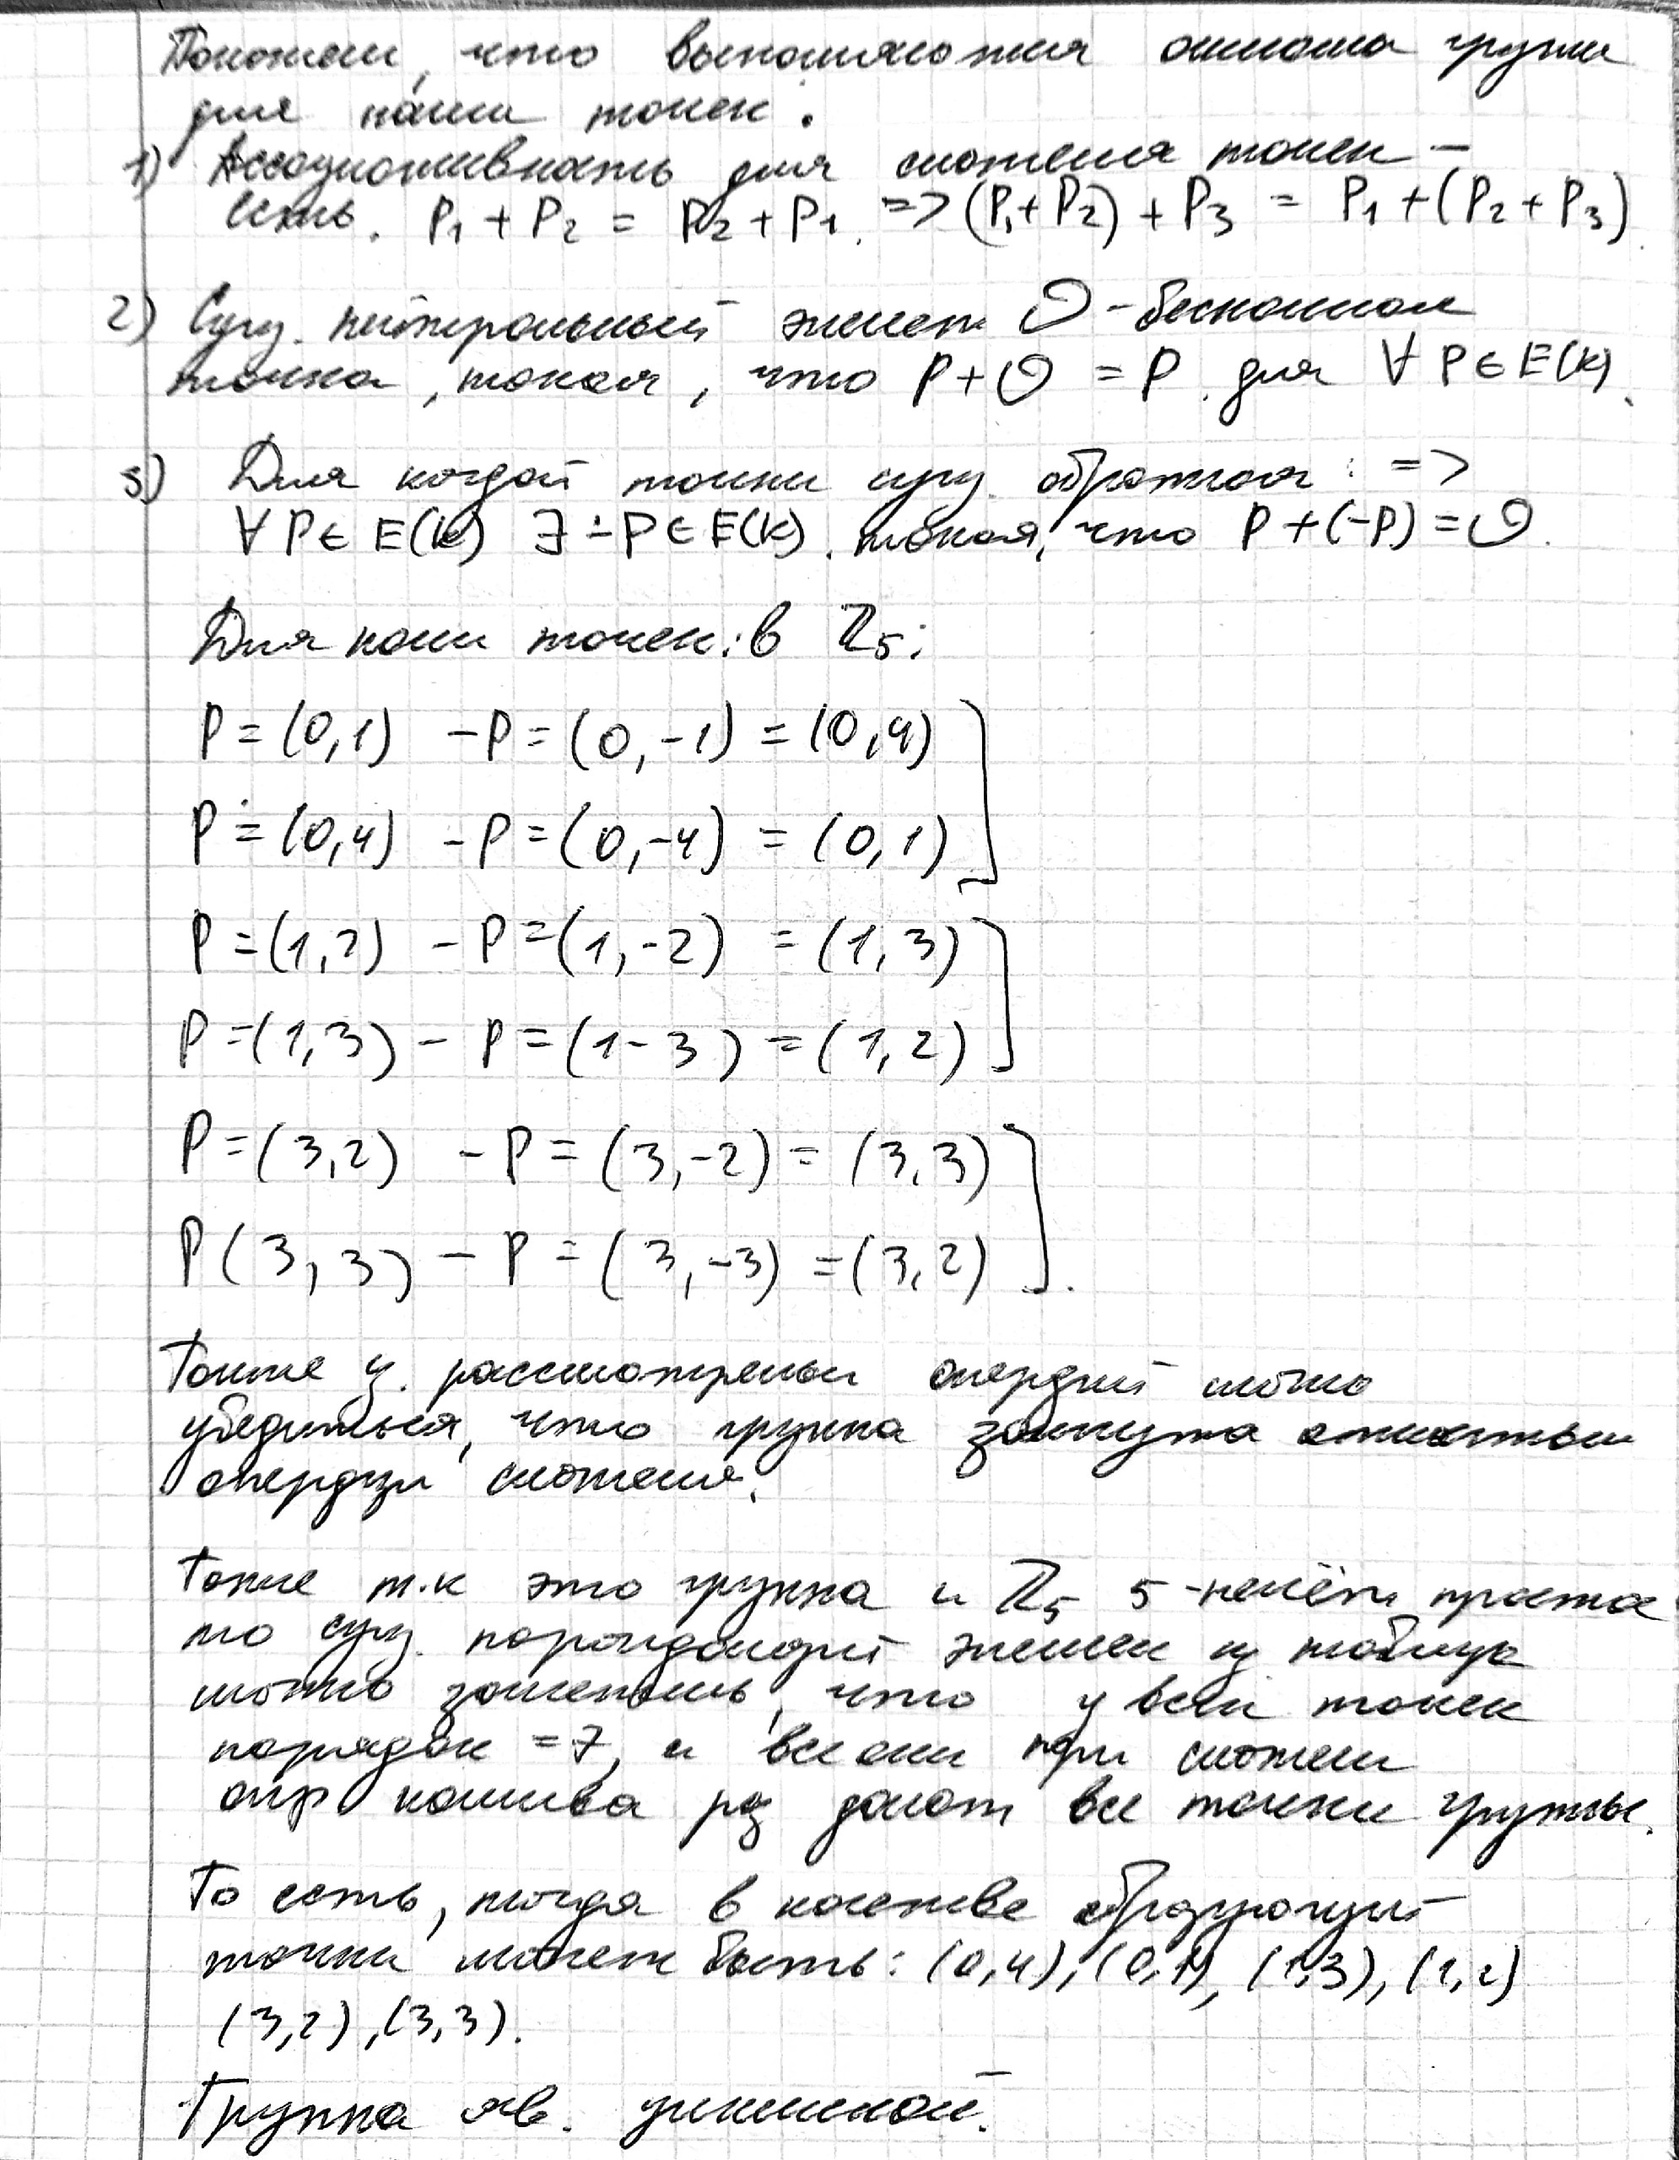 Покажем, что выполняются аксиомы группы
для наших точек:
1) Ассоциативность для сложения точек –
есть. P₁ + P₂ = P₂ + P₁. => (P₁ + P₂) + P₃ = P₁ + (P₂ + P₃).
2) Сущ. нейтральный элемент O – бесконечная
точка, такая, что P + O = P для ∀ P ∈ E(k).
3) Для каждой точки сущ. обратная: =>
∀ P ∈ E(k) ∃ -P ∈ E(k). такая, что P + (-P) = O.
Для наших точек: в ℤ₅:
P = (0,1) -P = (0,-1) = (0,4)
P = (0,4) -P = (0,-4) = (0,1)
P = (1,2) -P = (1,-2) = (1,3)
P = (1,3) -P = (1-3) = (1,2)
P = (3,2) -P = (3,-2) = (3,3)
P (3,3) -P = (3,-3) = (3,2).
Также из рассмотренных операций можно
убедиться, что группа замкнута относительно
операции сложения.
Также т.к это группа и ℤ₅ 5 -нечётн простое
то сущ. порождающий элемент из таблицы
можно заметить, что у всех точек
порядок = 7, и все они при сложении
опр количества раз дают все точки группы.
То есть, тогда в качестве образующей
точки может быть: (0,4), (0,1), (1,3), (1,2)
(3,2), (3,3).
Группа яв. циклической.